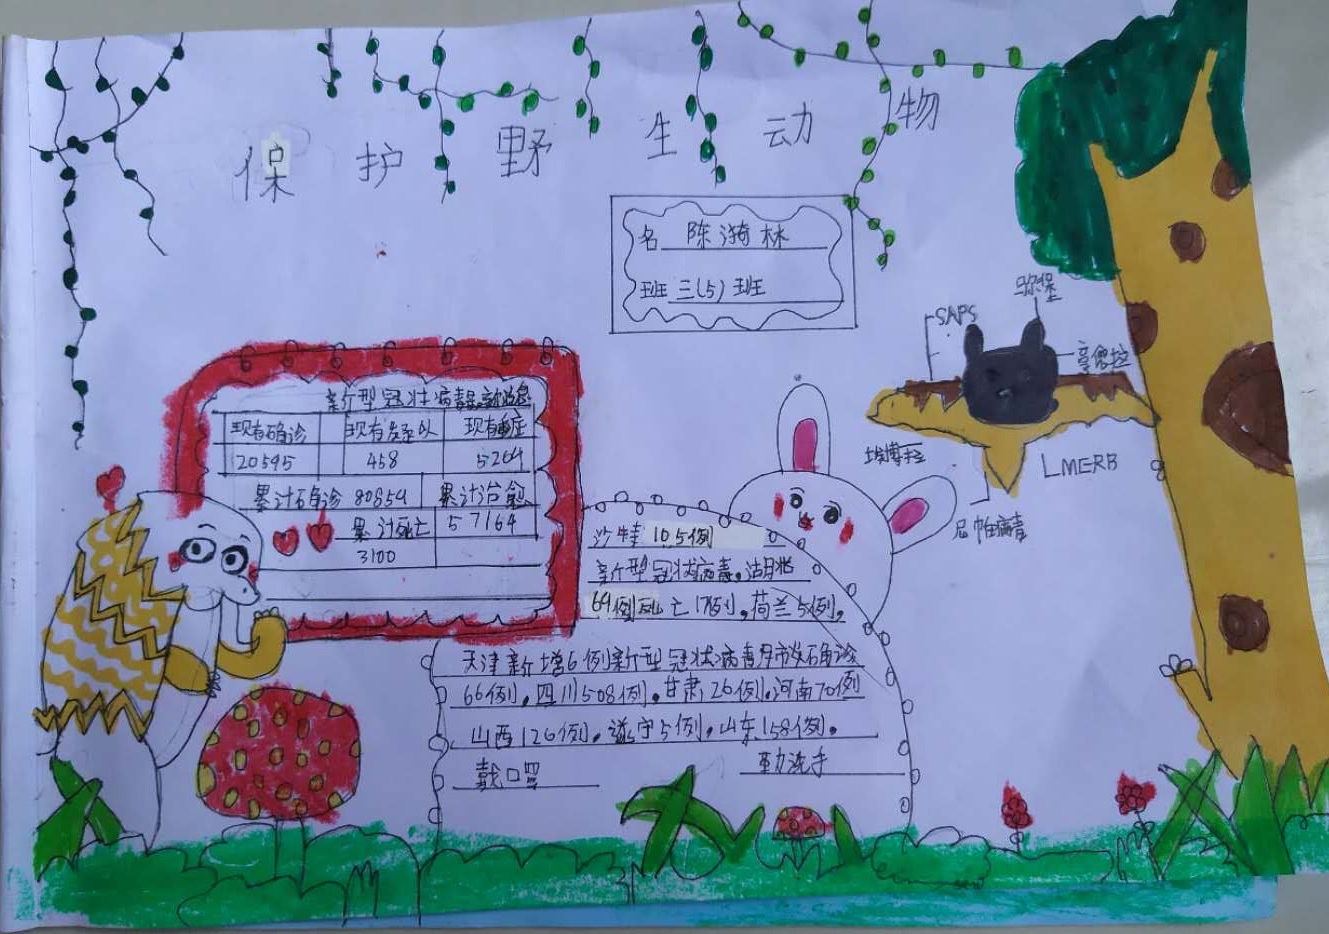 保护野生动物
名 陈漪林
班 三(5)班
SAPS
马尔堡
埃博拉
LMERB
尼帕病毒
新型冠状病毒最新消息
现有确诊 现有疑似 现有重症
20595 458 5264
累计确诊 80859 累计治愈
累计死亡 57164
3100
沙特 105例
新型冠状病毒。湖北
64例死亡17例,荷兰5例。
天津新增6例新型冠状病毒 确诊
66例,四川508例。甘肃26例。河南70例
山西126例。遂宁5例。山东158例。
戴口罩 勤洗手